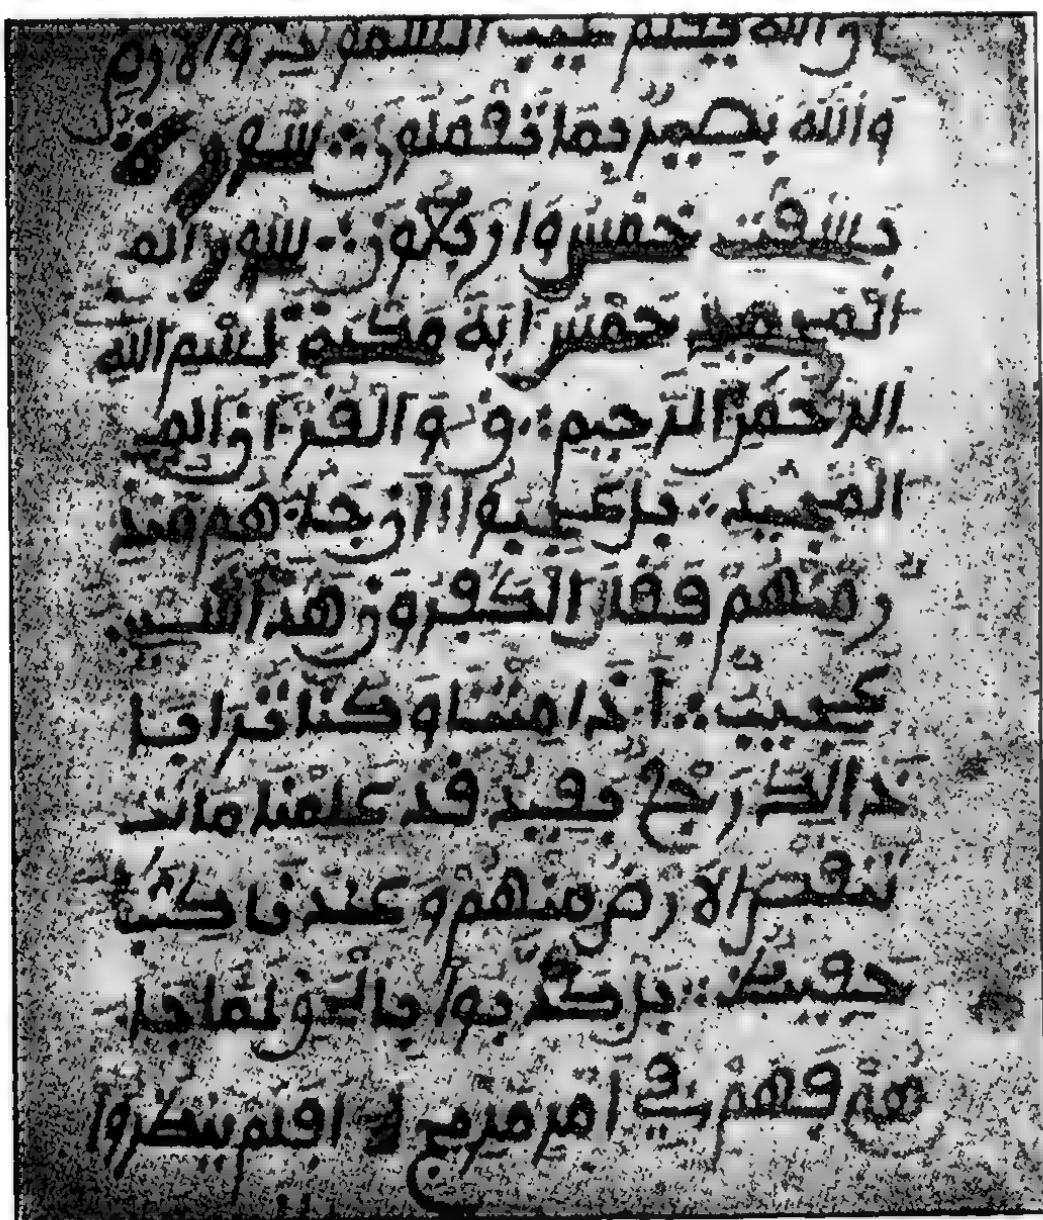 ان الله يعلم غيب السموت والارض
والله بصير بما تعملون سورة
بسقت خمس واربعون
اية مكية بسم الله
الرحمن الرحيم ق والقران الم
المجيد بل عجبوا ان جاهم منذ
ر منهم فقال الكفرون هذا شي
عجيب اذا متنا وكنا ترابا
ذلك رجع بعيد قد علمنا ما تنـ
تنقص الارض منهم وعندنا كتب
حفيظ بل كذبوا بالحق لما جا
هم فهم في امر مريج افلم ينظروا